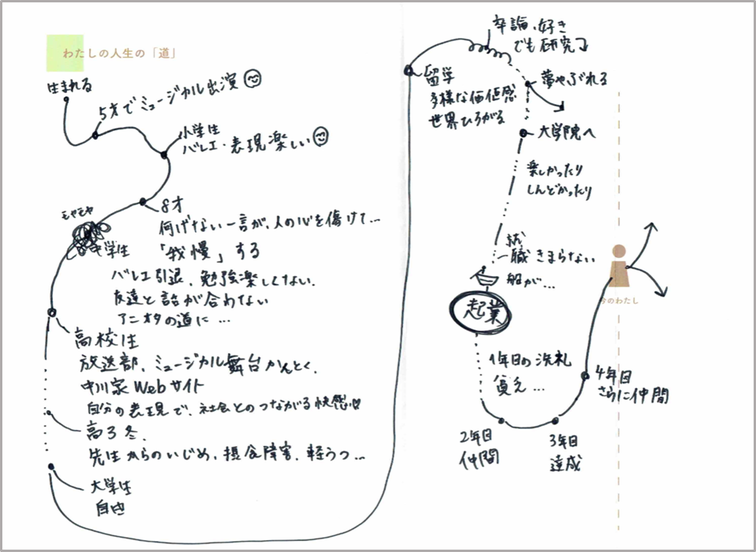 わたしの人生の「道」
生まれる
5才でミュージカル出演
小学生
バレエ・表現楽しい
8才
何げない一言が、人の心を傷けて…
「我慢」する
モヤモヤ
中学生
バレエ引退、勉強楽しくない、
友達と話が合わない
アニオタの道に…
高校生
放送部、ミュージカル舞台かんとく、
中川家Webサイト
自分の表現で、社会とのつながる快感
高3冬、
先生からのいじめ、摂食障害、軽うつ…
大学生
自由
留学
多様な価値感
世界ひろがる
卒論、好き
でも研究↓
夢やぶれる
大学院へ
楽しかったり
しんどかったり
就
職きまらない
船が…
起業
1年目の洗礼
2年目
仲間
3年目
達成
4年目
さらに仲間
今のわたし